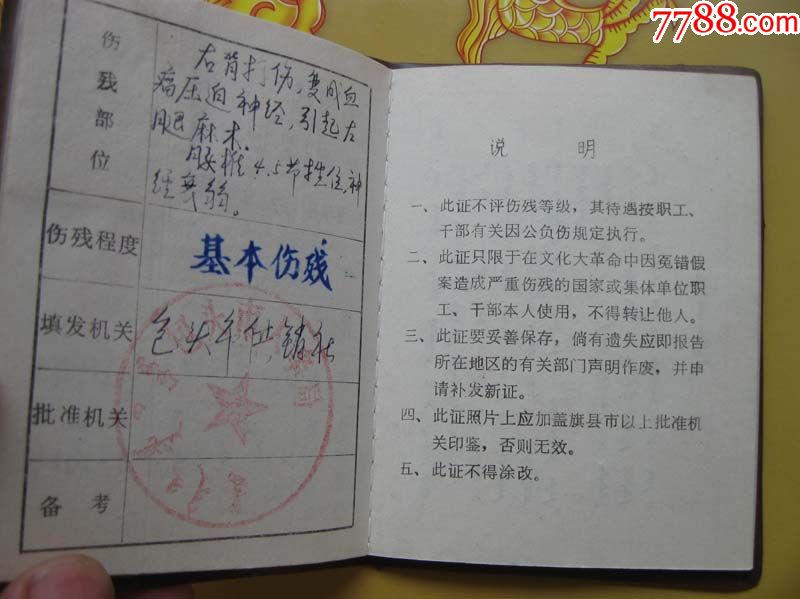 7788.com
伤残部位
右背打伤，变成血
瘤压迫神经，引起右
腿麻木。
腰椎4.5节挫位，神
经衰弱。
伤残程度
基本伤残
填发机关
包头市供销社
批准机关
备考
说 明
一、此证不评伤残等级，其待遇按职工、
干部有关因公负伤规定执行。
二、此证只限于在文化大革命中因冤错假
案造成严重伤残的国家或集体单位职
工、干部本人使用，不得转让他人。
三、此证要妥善保存，倘有遗失应即报告
所在地区的有关部门声明作废，并申
请补发新证。
四、此证照片上应加盖旗县市以上批准机
关印鉴，否则无效。
五、此证不得涂改。